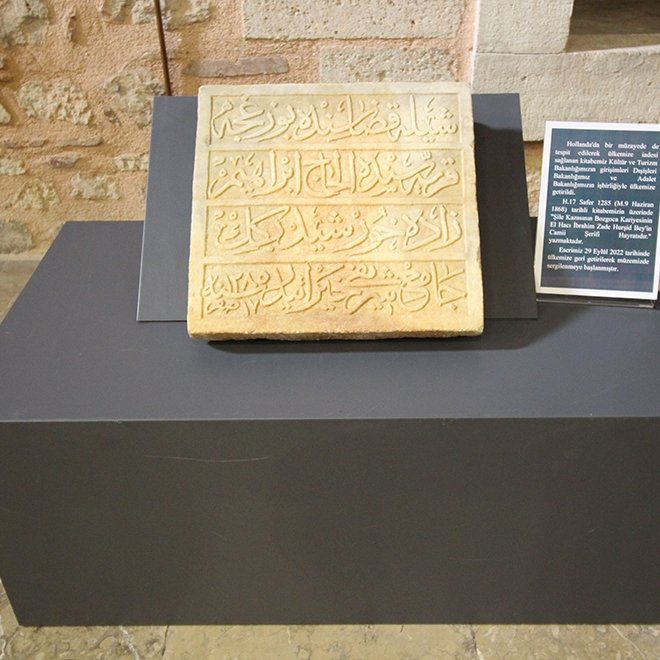 شيله قضاسنده بوزغجه
قريه سنده الحاج ابراهيم
زاده خورشيد بكك
جامع شريف خيراتيدر سنه ١٢٨٥
١٧
Hollanda'da bir müzayede de
tespit edilerek ülkemize iadesi
sağlanan kitabemiz Kültür ve Turizm
Bakanlığımızın girişimleri Dışişleri
Bakanlığımız ve Adalet
Bakanlığımızın işbirliğiyle ülkemize
getirildi.
H.17 Safer 1285 (M.9 Haziran
1868) tarihli kitabemizin üzerinde
"Şile Kazasının Bozgoca Kariyesinin
El Hacı İbrahim Zade Hurşid Bey'in
Camii Şerifi Hayratıdır."
yazmaktadır.
Eserimiz 29 Eylül 2022 tarihinde
ülkemize geri getirilerek müzemizde
sergilenmeye başlanmıştır.